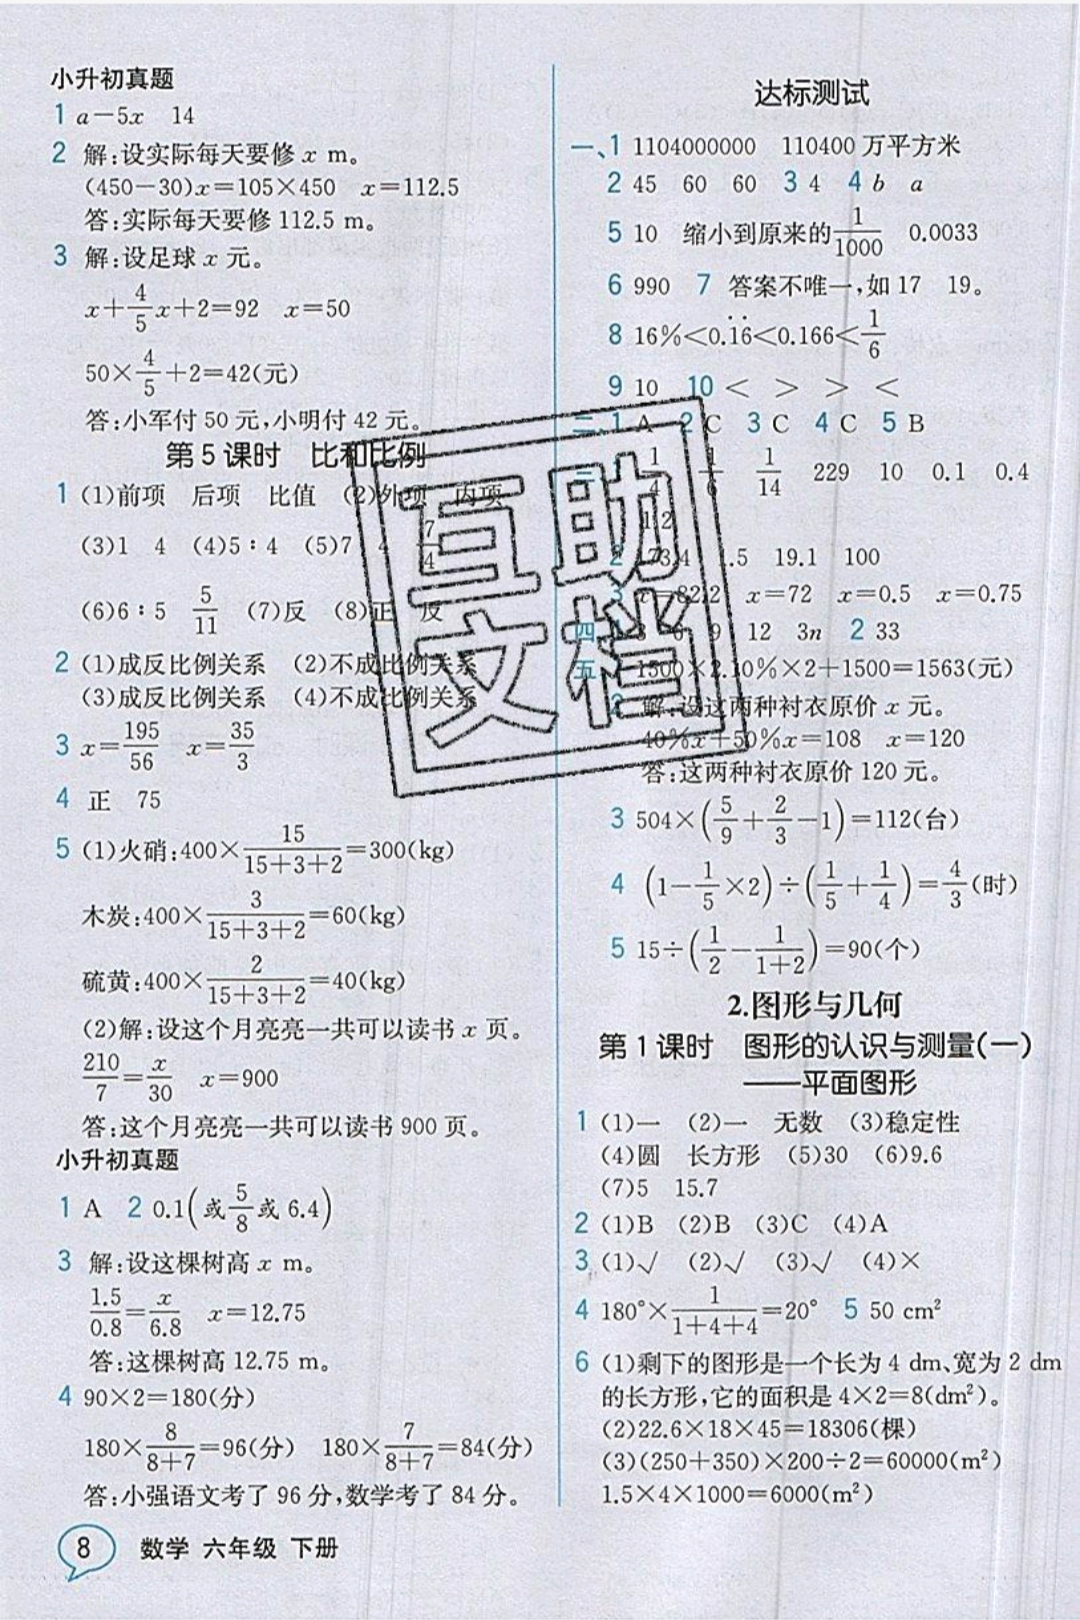 小升初真题
1 a－5x 14
2 解:设实际每天要修 x m。
(450－30)x＝105×450 x＝112.5
答:实际每天要修 112.5 m。
3 解:设足球 x 元。
x＋4/5x＋2＝92 x＝50
50×4/5＋2＝42(元)
答:小军付 50 元,小明付 42 元。
第 5 课时 比和比例
1 (1)前项 后项 比值 (2)外项 内项
(3)1 4 (4)5∶4 (5)7 4 7/4
(6)6∶5 5/11 (7)反 (8)正 反
2 (1)成反比例关系 (2)不成比例关系
(3)成反比例关系 (4)不成比例关系
3 x＝195/56 x＝35/3
4 正 75
5 (1)火硝:400×15/(15＋3＋2)＝300(kg)
木炭:400×3/(15＋3＋2)＝60(kg)
硫黄:400×2/(15＋3＋2)＝40(kg)
(2)解:设这个月亮亮一共可以读书 x 页。
210/7＝x/30 x＝900
答:这个月亮亮一共可以读书 900 页。
小升初真题
1 A 2 0.1(或5/8或 6.4)
3 解:设这棵树高 x m。
1.5/0.8＝x/6.8 x＝12.75
答:这棵树高 12.75 m。
4 90×2＝180(分)
180×8/(8＋7)＝96(分) 180×7/(8＋7)＝84(分)
答:小强语文考了 96 分,数学考了 84 分。
8 数学 六年级 下册
达标测试
一、1 1104000000 110400 万平方米
2 45 60 60 3 4 4 b a
5 10 缩小到原来的1/1000 0.0033
6 990 7 答案不唯一,如 17 19。
8 16%＜0.1̇6̇＜0.166＜1/6
9 10 10 ＜ ＞ ＞ ＜
二、1 A 2 C 3 C 4 C 5 B
三、1 1/4 1/6 1/14 229 10 0.1 0.4
1.2
2 73.4 1.5 19.1 100
3 x＝82.2 x＝72 x＝0.5 x＝0.75
四、1 3 6 9 12 3n 2 33
五、1 1500×2.10%×2＋1500＝1563(元)
2 解:设这两种衬衣原价 x 元。
40%x＋50%x＝108 x＝120
答:这两种衬衣原价 120 元。
3 504×(5/9＋2/3－1)＝112(台)
4 (1－1/5×2)÷(1/5＋1/4)＝4/3(时)
5 15÷(1/2－1/(1＋2))＝90(个)
2.图形与几何
第 1 课时 图形的认识与测量(一)
——平面图形
1 (1)一 (2)一 无数 (3)稳定性
(4)圆 长方形 (5)30 (6)9.6
(7)5 15.7
2 (1)B (2)B (3)C (4)A
3 (1)√ (2)√ (3)√ (4)×
4 180°×1/(1＋4＋4)＝20° 5 50 cm²
6 (1)剩下的图形是一个长为 4 dm、宽为 2 dm
的长方形,它的面积是 4×2＝8(dm²)。
(2)22.6×18×45＝18306(棵)
(3)(250＋350)×200÷2＝60000(m²)
1.5×4×1000＝6000(m²)
互助
文档